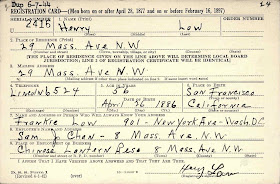 DSD 6-7-44 24
REGISTRATION CARD—(Men born on or after April 28, 1877 and on or before February 16, 1897)
SERIAL NUMBER 1. NAME (Print) ORDER NUMBER
Henry Low
2. PLACE OF RESIDENCE (Print)
29 Mass. Ave N.W
[THE PLACE OF RESIDENCE GIVEN ON THE LINE ABOVE WILL DETERMINE LOCAL BOARD
JURISDICTION; LINE 2 OF REGISTRATION CERTIFICATE WILL BE IDENTICAL]
3. MAILING ADDRESS
29 Mass. Ave N.W
4. TELEPHONE 5. AGE IN YEARS 6. PLACE OF BIRTH
Lincoln 6524 56 San Francisco
DATE OF BIRTH
April 26 1886 California
7. NAME AND ADDRESS OF PERSON WHO WILL ALWAYS KNOW YOUR ADDRESS
Frankie Low 901-New York Ave-Wash. DC
8. EMPLOYER'S NAME AND ADDRESS
Sam J. Chan - 8 Mass. Ave. N.W.
9. PLACE OF EMPLOYMENT OR BUSINESS
Chinese Lantern Rest 8 Mass. Ave N.W
I AFFIRM THAT I HAVE VERIFIED ABOVE ANSWERS AND THAT THEY ARE TRUE.
Henry Low